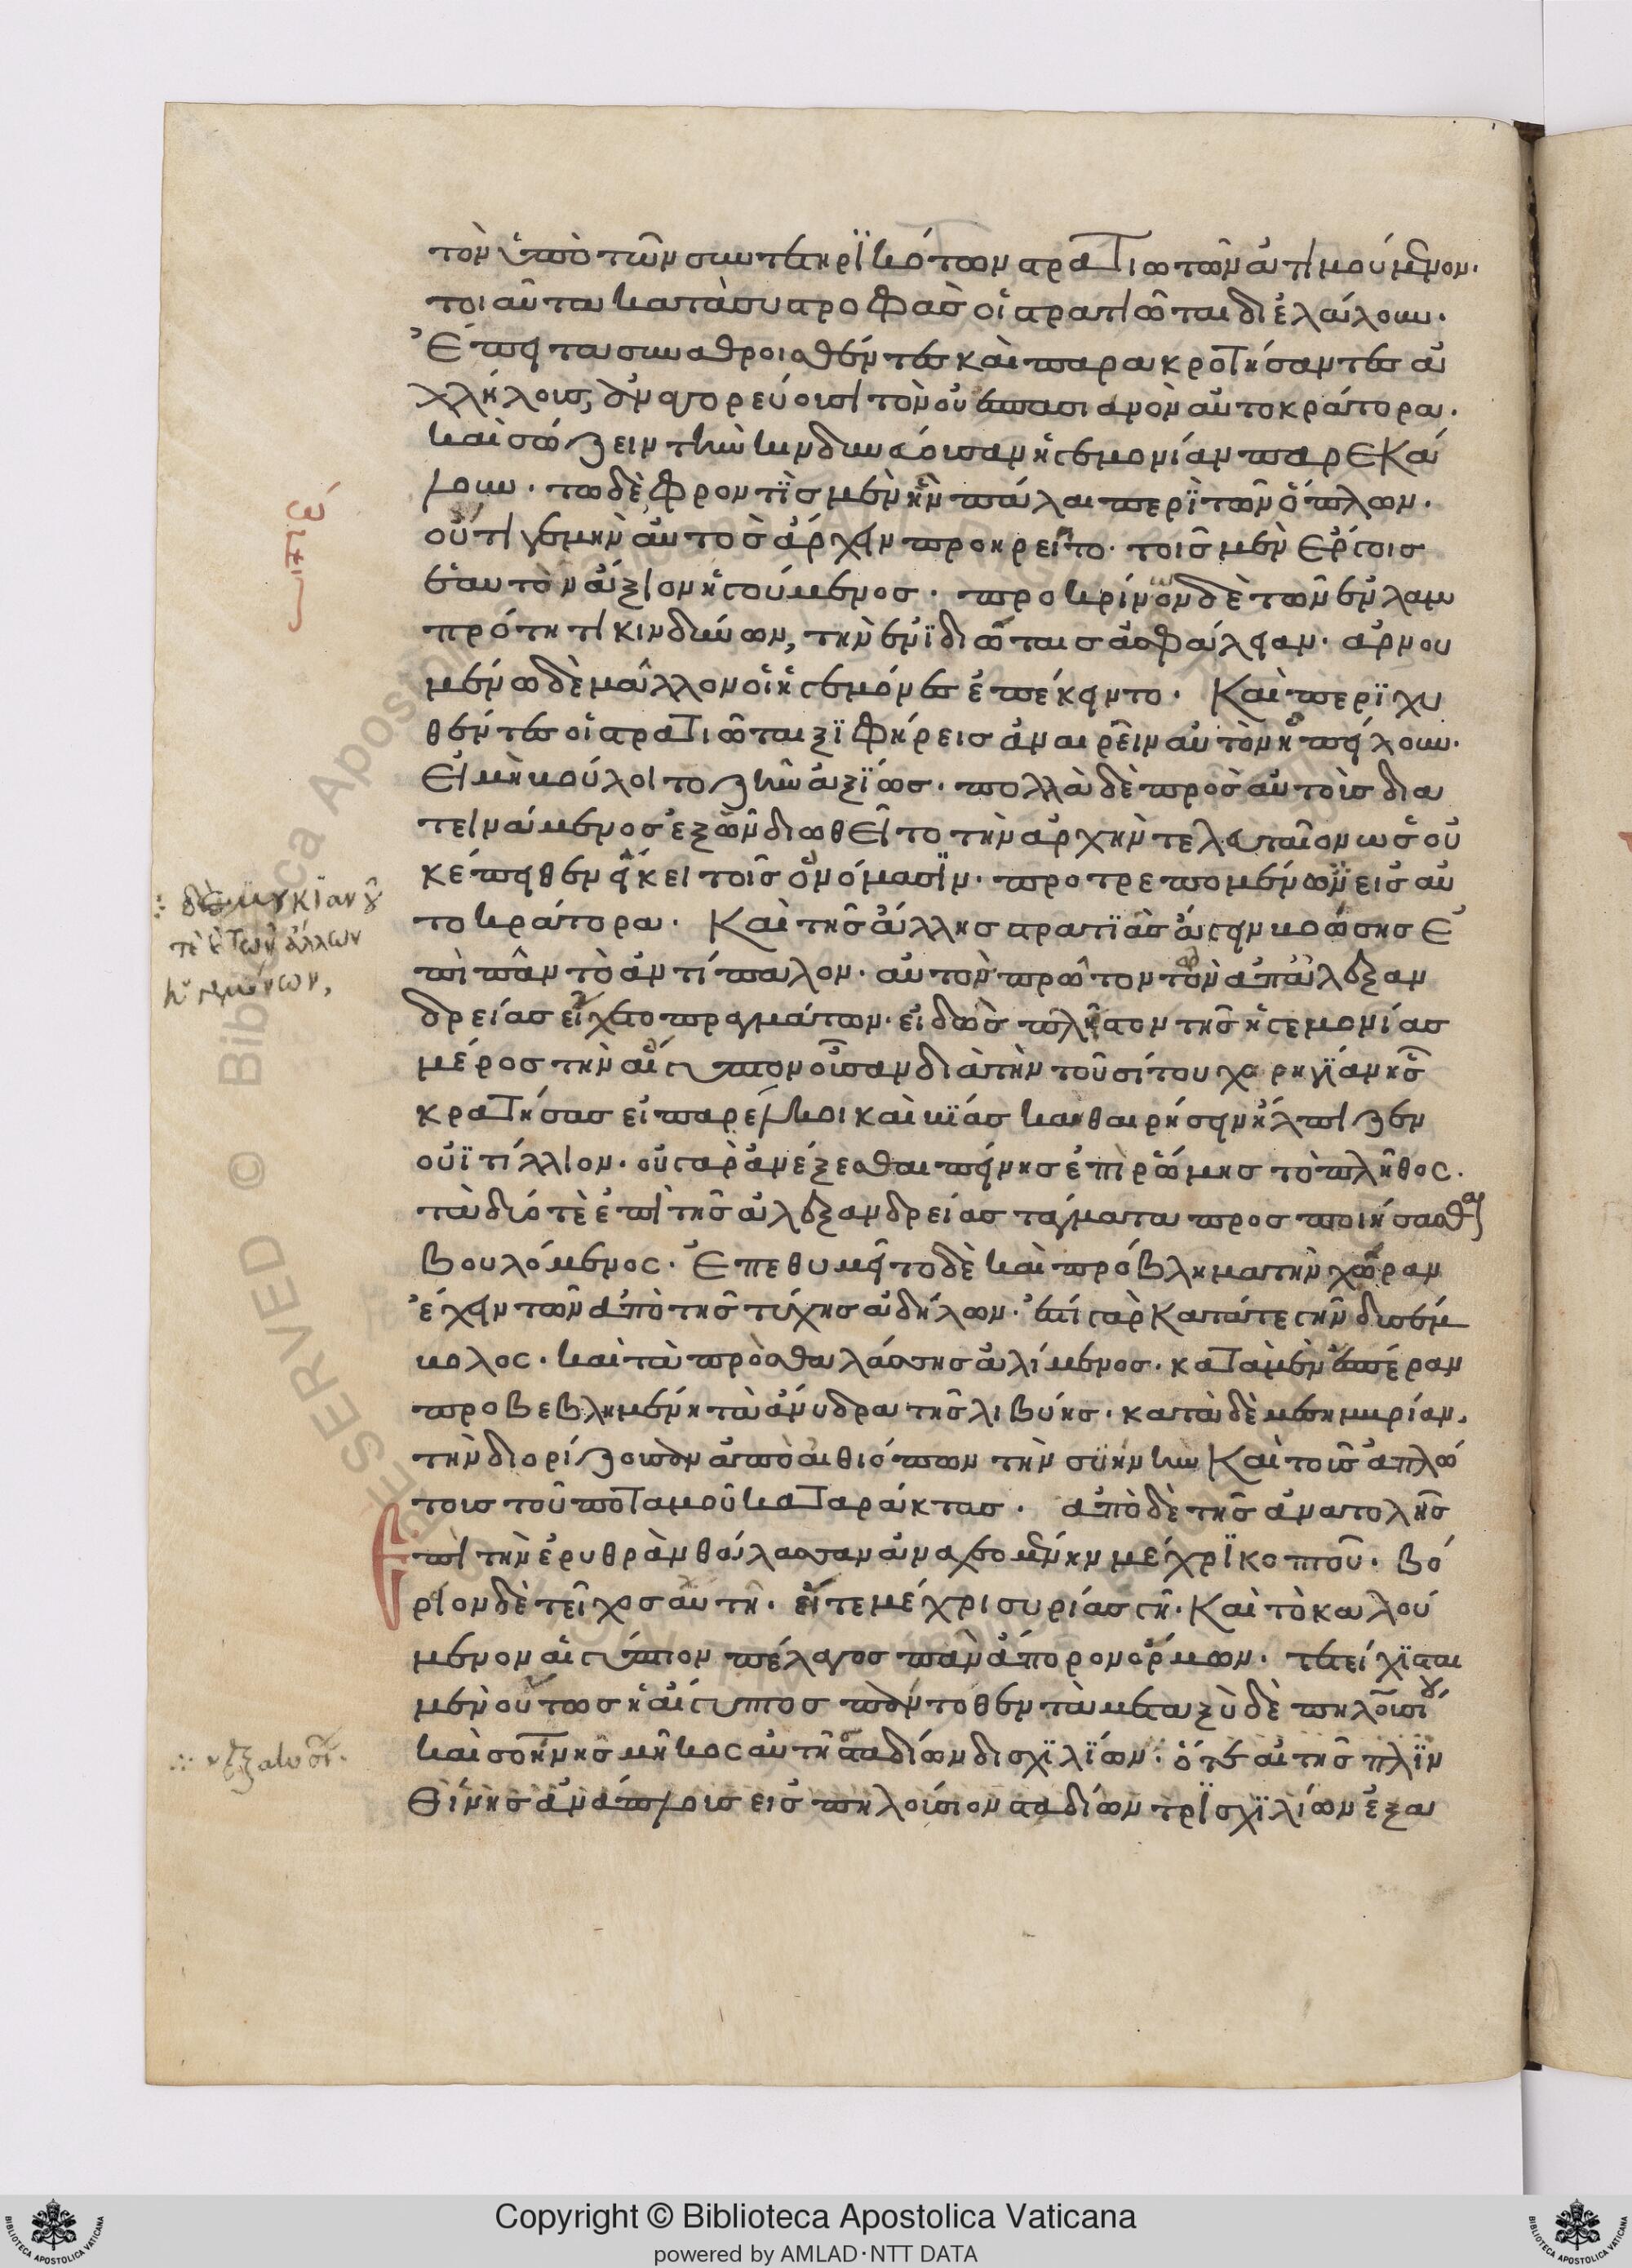 τὸν ὑπὸ τῶν συντετηρικότων στρατιωτῶν ἀτιμούμενον.
τοιαῦτα κατὰ συστροφὰς οἱ στρατιῶται διελάλουν.
Ἔπειτα συναθροισθέντες καὶ παρακροτήσαντες ἀλ
λήλοις, ἀναγορεύουσι τὸν οὐεσπασιανὸν αὐτοκράτορα.
καὶ σώζειν τὴν κινδυνεύουσαν ἡγεμονίαν παρεκά
λουν. τῷ δὲ φροντὶς μὲν ἦν πάλαι περὶ τῶν ὅλων.
οὔτι γε μὴν αὐτὸς ἄρχειν προῄρειτο. τοῖς μὲν ἔργοις
ἑαυτὸν ἄξιον ἡγούμενος. προκρίνων δὲ τῶν ἐν λαμ
πρότητι κινδύνων, τὴν ἐν ἰδιώταις ἀσφάλειαν. ἀρνου
μένῳ δὲ μᾶλλον οἱ ἡγεμόνες ἐπέκειντο. Καὶ περιχυ
θέντες οἱ στρατιῶται ξιφήρεις ἀναιρεῖν αὐτὸν ἠπείλουν.
Εἰ μὴ βούλοιτο ζῆν ἀξίως. πολλὰ δὲ πρὸς αὐτοὺς δια
τεινάμενος ἐξ ὧν διωθεῖτο τὴν ἀρχὴν τελευταῖον ὡς οὐ
κ ἔπειθεν εἴκει τοῖς ὀνόμασιν. προτρεπομένων εἰς αὐ
τοκράτορα. Καὶ τῆς ἄλλης στρατιᾶς ἄγειν βοώσης ἐ
πὶ πᾶν τὸ ἀντίπαλον. αὐτὸν πρῶτον τῶν ἀπ' ἀλεξαν
δρείας εἴχετο πραγμάτων. εἰδὼς πλεῖστον τῆς ἡγεμονίας
μέρος τὴν αἴγυπτον οὖσαν διὰ τὴν τοῦ σίτου χορηγίαν ἧς
κρατήσας εἰ παρέλκοι καὶ βίας καθαιρήσειν ἤλπιζεν
οὐϊτέλλιον. οὐ γὰρ ἀνέξεσθαι πείνης ἐπὶ ῥώμης τὸ πλῆθος.
τὰ δύο τὲ ἐπὶ τῆς ἀλεξανδρείας τάγματα προσποιήσασθαι
βουλόμενος. Ἐπεθυμεῖτο δὲ καὶ πρόβλημα τὴν χώραν
ἔχειν τῶν ἀπὸ τῆς τύχης ἀδήλων. ἔστι γὰρ κατά τε γῆν δυσέμ
βολος. καὶ τὰ πρὸς θαλάσσης ἀλίμενος. κατὰ μὲν ἑσπέραν
προβεβλημένη τὰ ἄνυδρα τῆς λιβύης. κατὰ δὲ μεσημβρίαν.
τὴν διορίζουσαν ἀπὸ αἰθιόπων τὴν συήνην Καὶ τοὺς ἀπλώ
τους τοῦ ποταμοῦ καταράκτας. ἀπὸ δὲ τῆς ἀνατολῆς
τὴν ἐρυθρὰν θάλασσαν ἀναχεομένην μέχρι κοπτοῦ. βό
ριον δὲ τεῖχος αὐτῇ. ἥ τε μέχρι συρίας γῆ. Καὶ τὸ καλού
μενον αἰγύπτιον πέλαγος πᾶν ἄπορον ὅρμων. τετείχισται
μὲν οὕτως ἡ αἴγυπτος πάντοθεν τὰ μεταξὺ δὲ πηλουσίου
καὶ σοήνης μῆκος αὐτῆ σταδίων δισχιλίων. ὅ τε ἀπὸ τῆς πλιν
θίνης ἀνάπλους εἰς πηλούσιον σταδίων τρισχιλίων ἑξα